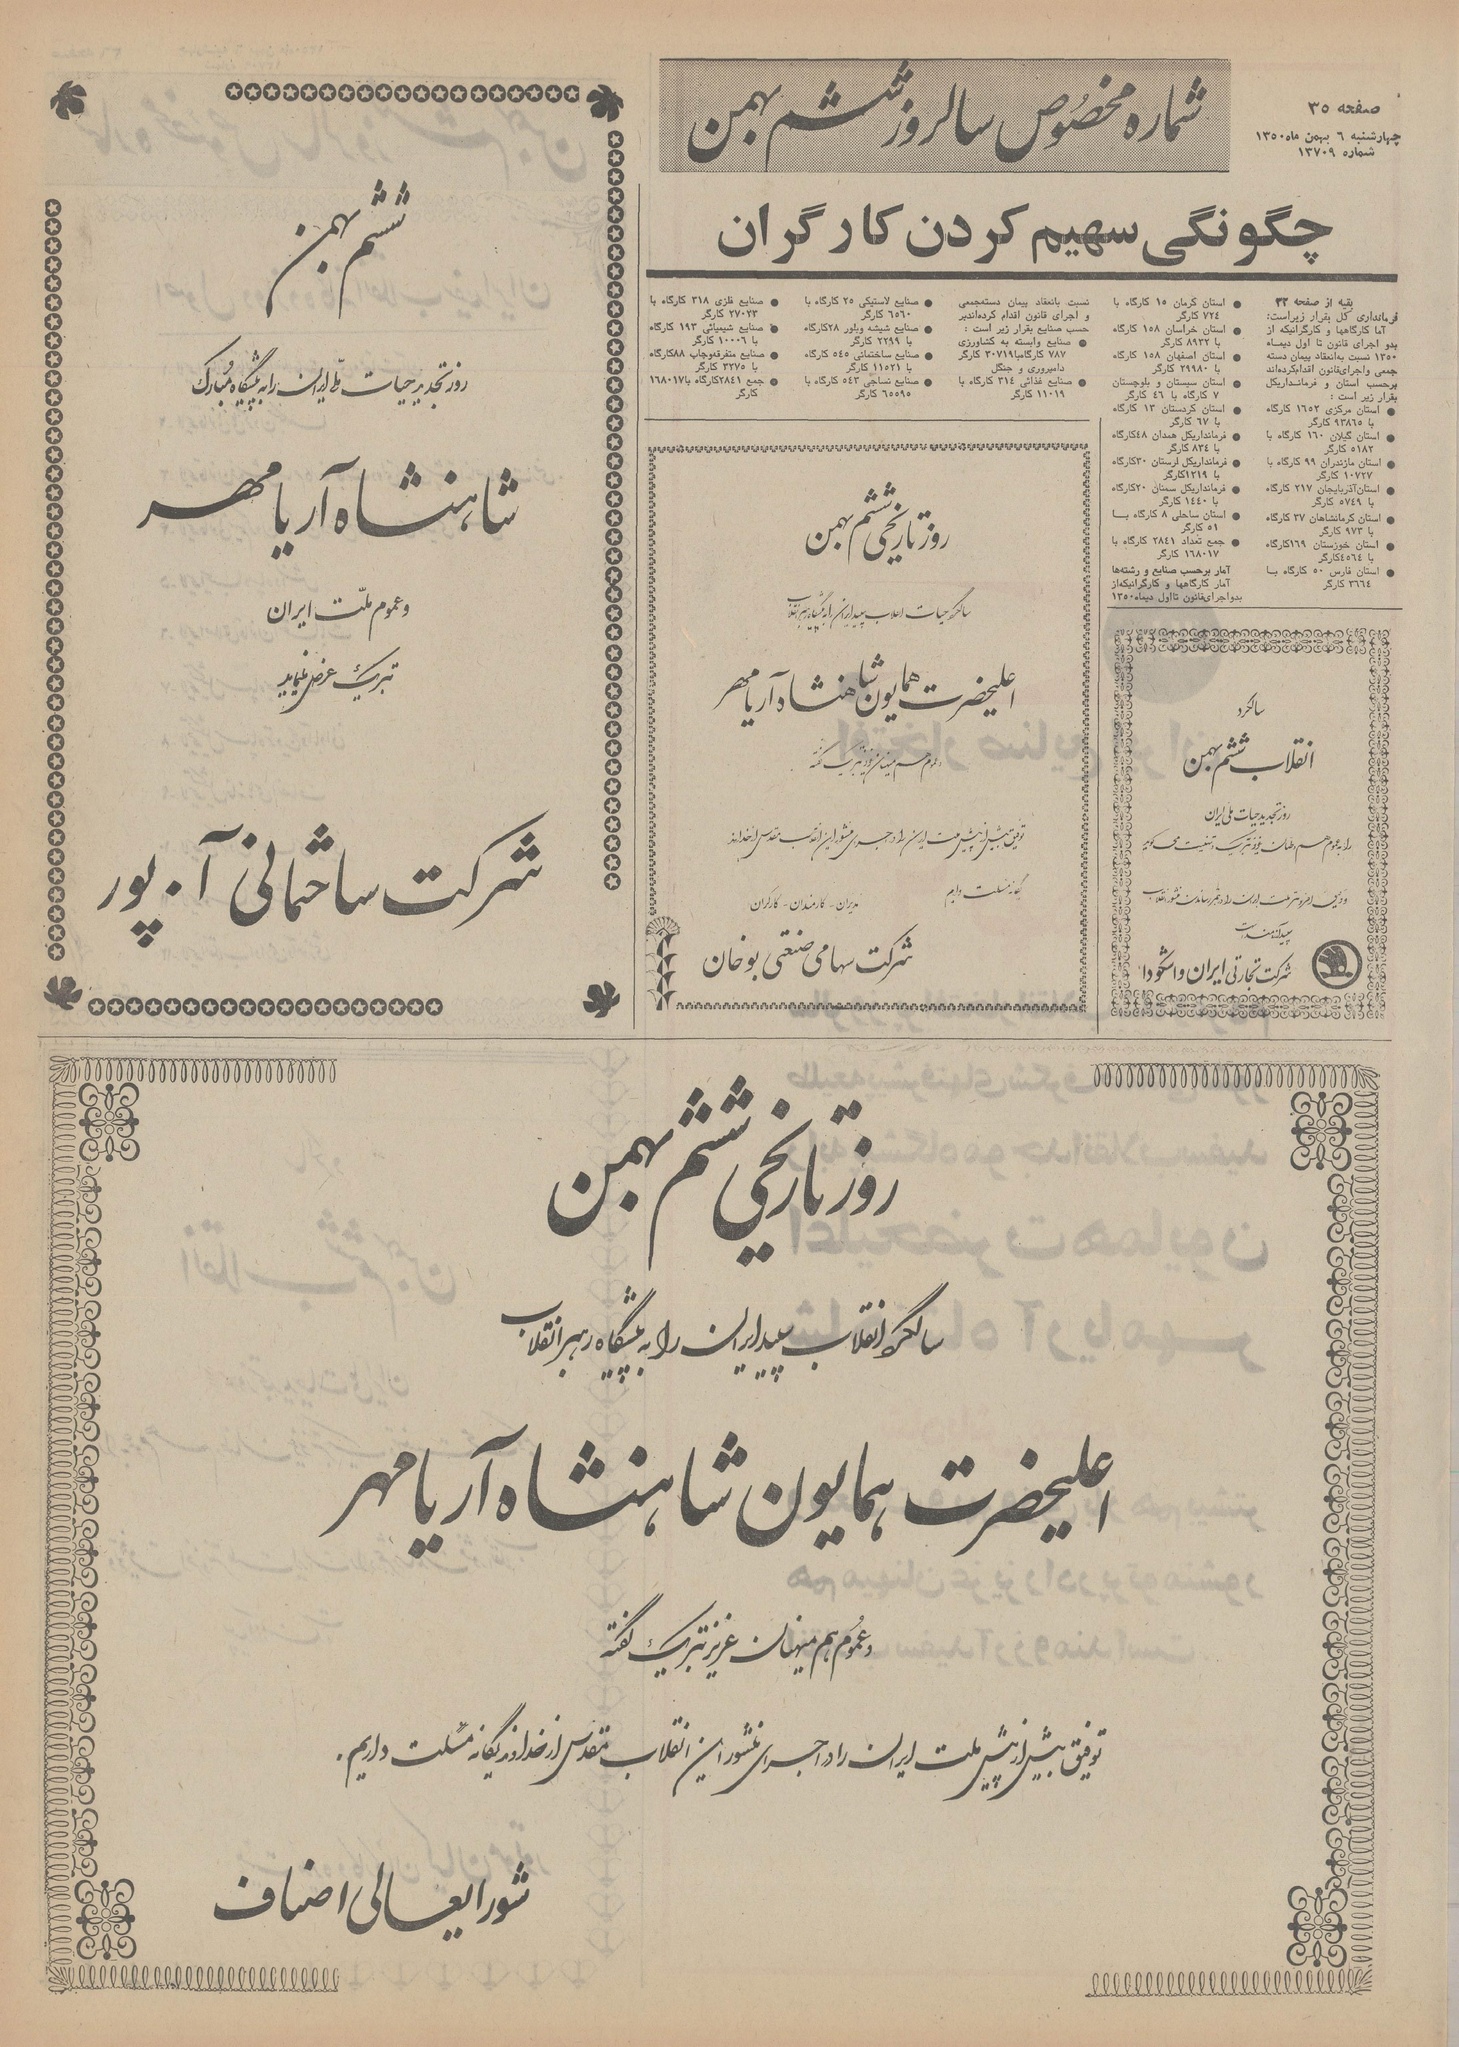 صفحه ۳۵
چهارشنبه ۶ بهمن ماه ۱۳۵۰
شماره ۱۳۷۰۹
شماره مخصوص سالروز ششم بهمن
چگونگی سهیم کردن کارگران
بقیه از صفحه ۳۲
فرمانداری کل بقرار زیراست:
آما کارگاهها و کارگرانیکه از
بدو اجرای قانون تا اول دیماه
۱۳۵۰ نسبت به‌انعقاد پیمان دسته
جمعی واجرای‌قانون اقدام‌کرده‌اند
برحسب استان و فرمانداریکل
بقرار زیر است :
● استان مرکزی ۱۶۵۲ کارگاه
با ۹۳۸۶۵ کارگر
● استان گیلان ۱۶۰ کارگاه با
۵۱۸۲ کارگر
● استان مازندران ۹۹ کارگاه با
۱۰۷۲۷ کارگر
● استان‌آذربایجان ۲۱۷ کارگاه
با ۵۷۴۹ کارگر
● استان کرمانشاهان ۳۷ کارگاه
با ۹۷۳ کارگر
● استان خوزستان ۱۶۹کارگاه
با ۴۵۶۴کارگر
● استان فارس ۵۰ کارگاه با
۳۶۶۴ کارگر
● استان کرمان ۱۵ کارگاه با
۷۲۴ کارگر
● استان خراسان ۱۵۸ کارگاه
با ۸۹۳۲ کارگر
● استان اصفهان ۱۵۸ کارگاه
با ۲۹۹۸۰ کارگر
● استان سیستان و بلوچستان
۷ کارگاه با ۴۶ کارگر
● استان کردستان ۱۳ کارگاه
با ۶۷ کارگر
● فرمانداریکل همدان ۴۸کارگاه
با ۸۳۴ کارگر
● فرمانداریکل لرستان ۳۰کارگاه
با ۱۲۱۹کارگر
● فرمانداریکل سمنان ۲۰کارگاه
با ۱۴۴۰ کارگر
● استان ساحلی ۸ کارگاه با
۵۱ کارگر
● جمع تعداد ۲۸۴۱ کارگاه با
۱۶۸۰۱۷ کارگر
آمار برحسب صنایع و رشته‌ها
آمار کارگاهها و کارگرانیکه‌از
بدواجرای‌قانون تااول دیماه۱۳۵۰
نسبت بانعقاد پیمان دسته‌جمعی
و اجرای قانون اقدام کرده‌اندبر
حسب صنایع بقرار زیر است :
● صنایع وابسته به کشاورزی
۷۸۷ کارگاه‌با۳۰۷۱۹ کارگر
دامپروری و جنگل
● صنایع غذائی ۳۱۴ کارگاه با
۱۱۰۱۹ کارگر
● صنایع لاستیکی ۲۵ کارگاه با
۶۵۶۰ کارگر
● صنایع شیشه وبلور ۲۸کارگاه
با ۲۲۹۹ کارگر
● صنایع ساختمانی ۵۴۵ کارگاه
با ۱۱۵۲۱ کارگر
● صنایع نساجی ۵۴۳ کارگاه با
۶۵۵۹۵ کارگر
● صنایع فلزی ۳۱۸ کارگاه با
۲۷۰۲۳ کارگر
● صنایع شیمیائی ۱۹۳ کارگاه
با ۱۰۰۰۶ کارگر
● صنایع متفرقه‌وچاپ ۸۸کارگاه
با ۳۲۷۵ کارگر
● جمع ۲۸۴۱کارگاه با ۱۶۸۰۱۷
کارگر
سالگرد
انقلاب ششم بهمن
روز تجدید حیات ملی ایران
شرکت تجارتی ایران و اشکودا
روز تاریخی ششم بهمن
اعلیحضرت همایون شاهنشاه آریامهر
توفیق بیش از پیش ملت ایران را در اجرای منشور این انقلاب مقدس از خداوند
یگانه مسئلت داریم
مدیران - کارمندان - کارگران
شرکت سهامی صنعتی بوخان
ششم بهمن
روز تجدید حیات ملّی ایران را به پیشگاه مبارک
شاهنشاه آریامهر
و عموم ملّت ایران
تبریک عرض مینماید
شرکت ساختمانی آ . پور
روز تاریخی ششم بهمن
سالگرد انقلاب سپید ایران را به پیشگاه رهبر انقلاب
اعلیحضرت همایون شاهنشاه آریامهر
و عموم هم میهنان عزیز تبریک گفته
توفیق بیش از پیش ملت ایران را در اجرای منشور این انقلاب مقدس از خداوند یگانه مسئلت داریم.
شورایعالی اصناف